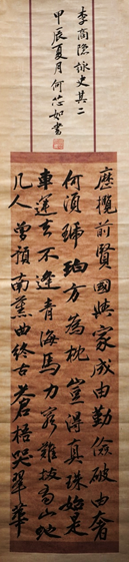 李商隐詠史其二
甲辰夏月何芯如書
歷覽前賢國與家成由勤儉破由奢
何須琥珀方為枕豈得真珠始是
車運去不逢青海馬力窮難拔蜀山蛇
几人曾預南薰曲終古蒼梧哭翠華